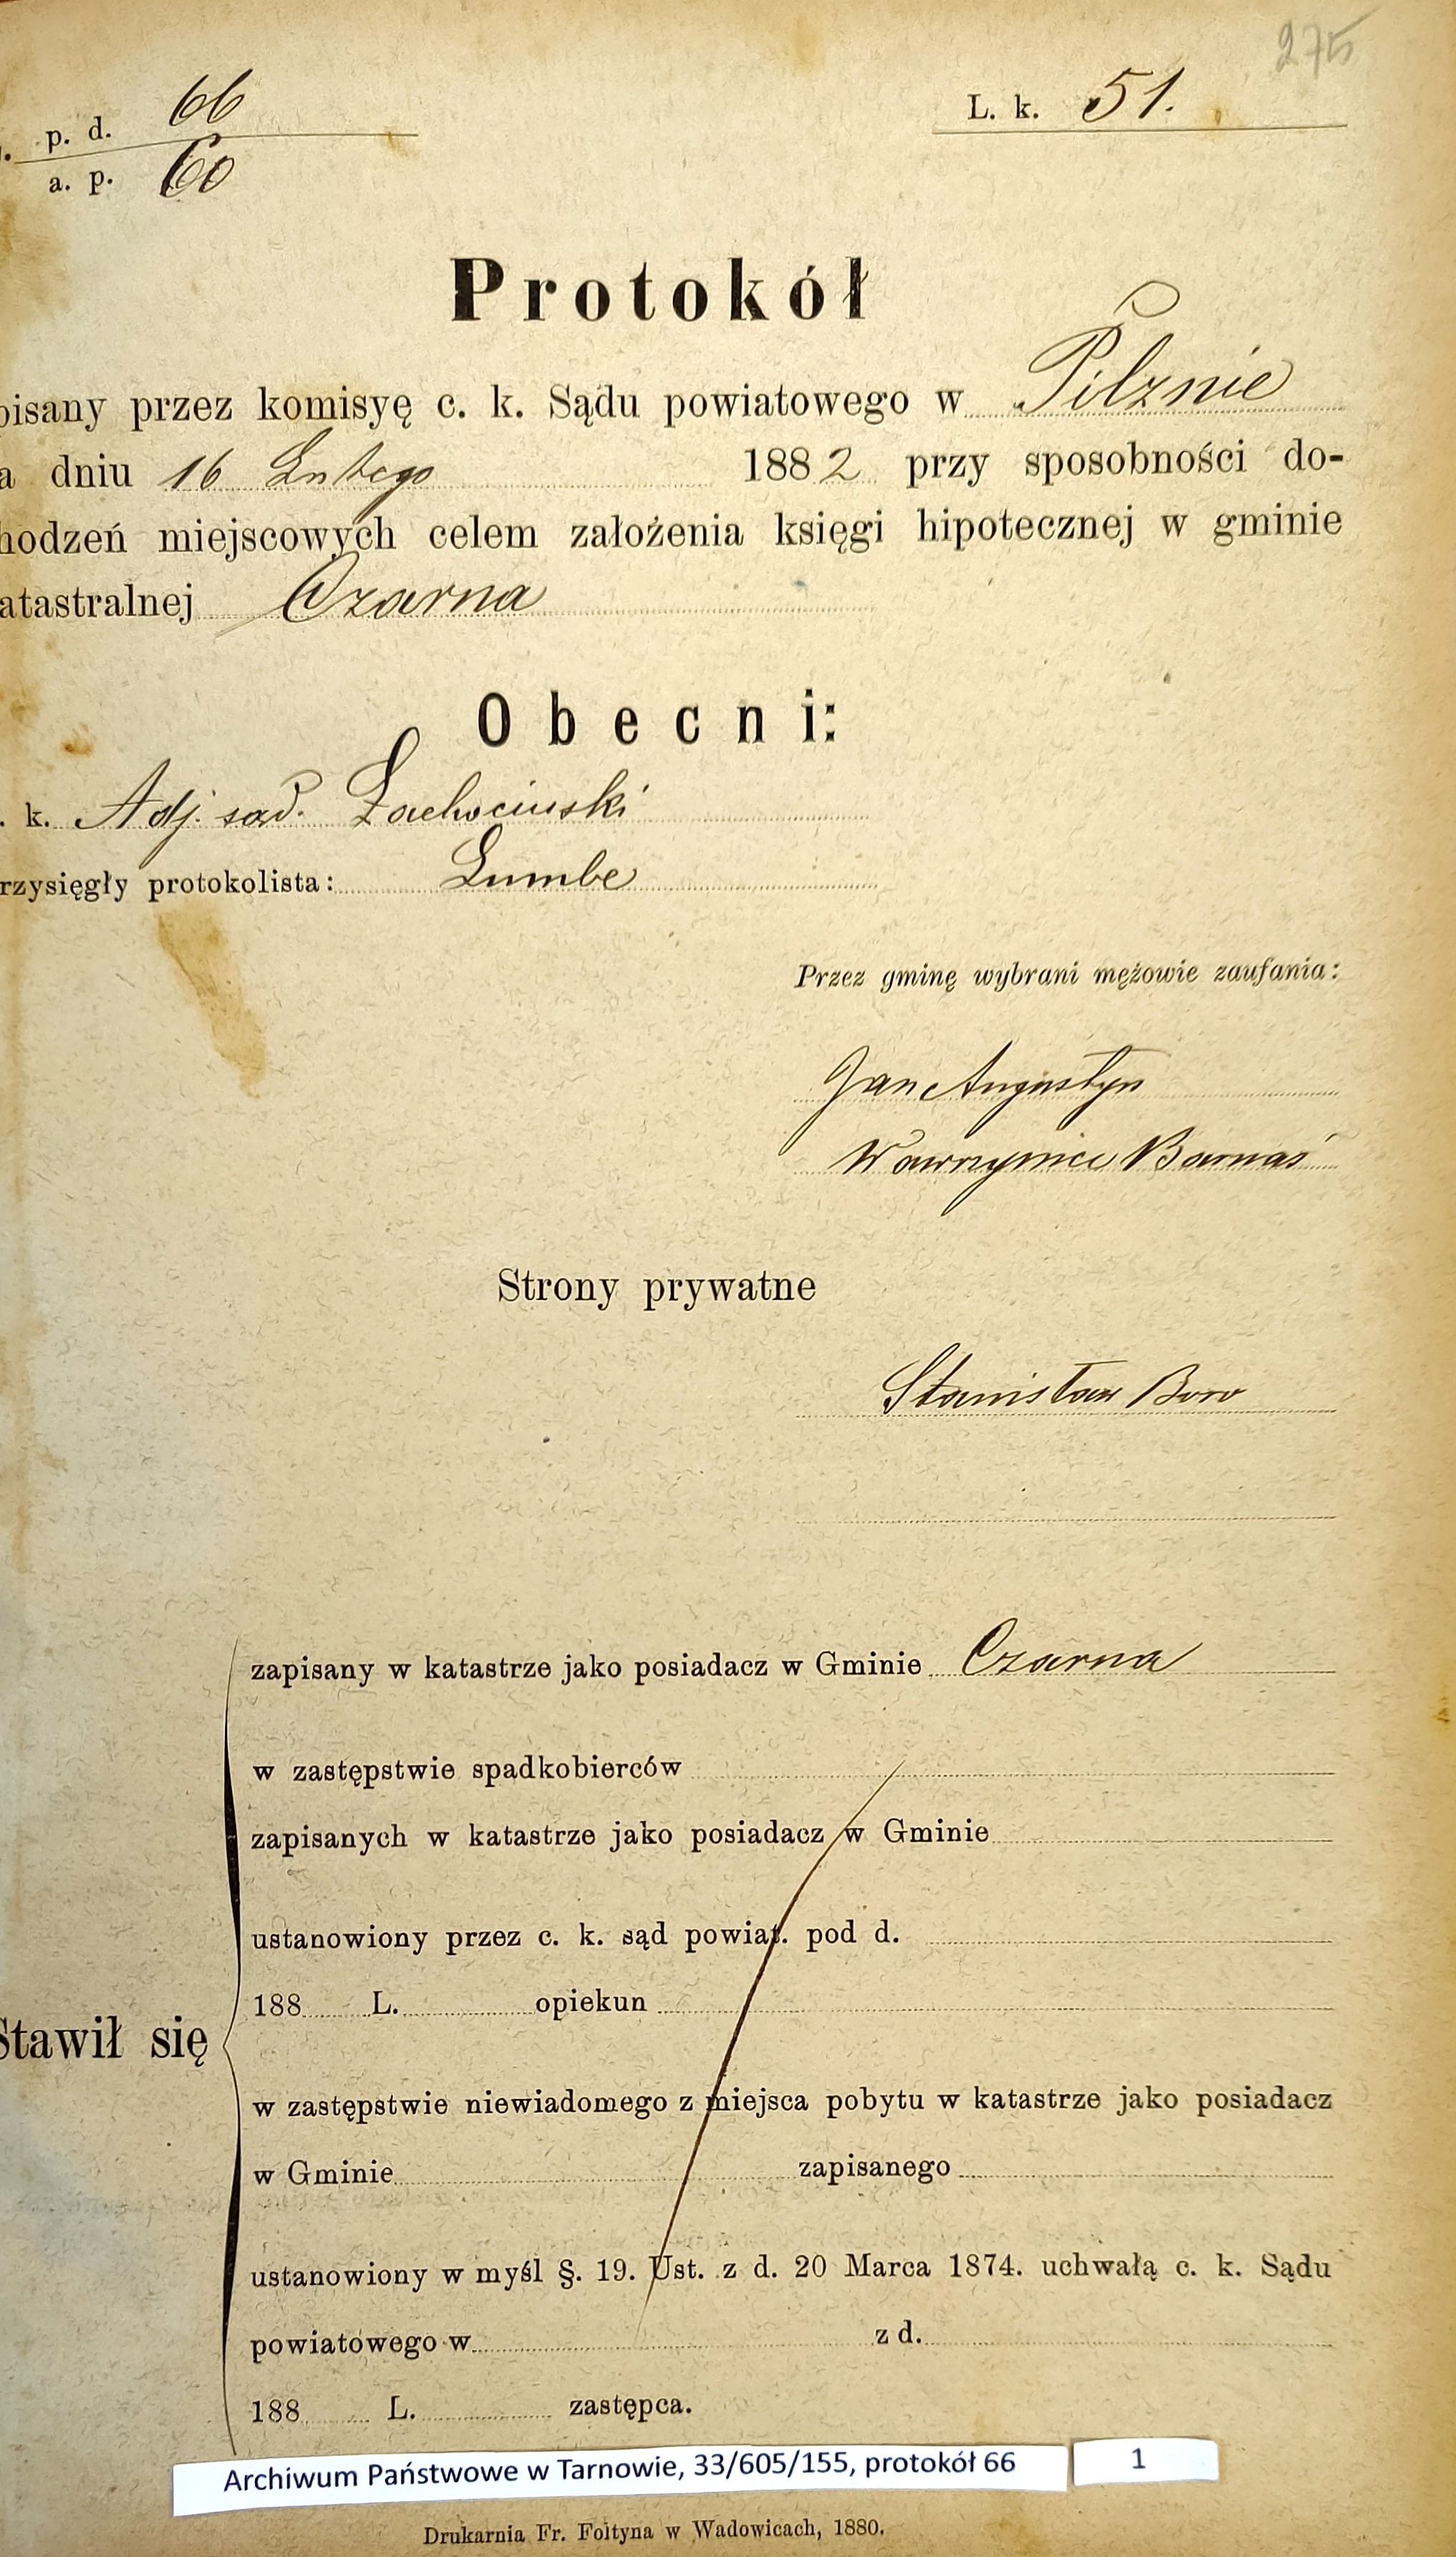 275
p. d. 66
L. k. 51.
a. p. 60
Protokół
pisany przez komisyę c. k. Sądu powiatowego w Pilznie
a dniu 16 Lutego 1882 przy sposobności do-
hodzeń miejscowych celem założenia księgi hipotecznej w gminie
atastralnej Czarna
Obecni:
. k. Adj. sąd. Żachociński
rzysięgły protokolista: Lumbe
Przez gminę wybrani mężowie zaufania:
Jan Augustyn
Wawrzyniec Barnaś
Strony prywatne
Stanisław
zapisany w katastrze jako posiadacz w Gminie Czarna
w zastępstwie spadkobierców
zapisanych w katastrze jako posiadacz w Gminie
ustanowiony przez c. k. sąd powiat. pod d.
188 L. opiekun
Stawił się
w zastępstwie niewiadomego z miejsca pobytu w katastrze jako posiadacz
w Gminie zapisanego
ustanowiony w myśl §. 19. Ust. z d. 20 Marca 1874. uchwałą c. k. Sądu
powiatowego w z d.
188 L. zastępca.
Archiwum Państwowe w Tarnowie, 33/605/155, protokół 66 1
Drukarnia Fr. Foltyna w Wadowicach, 1880.